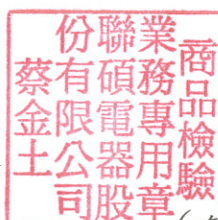 商品檢驗
業務專用章
聯碩電器股
份有限公司
蔡金土